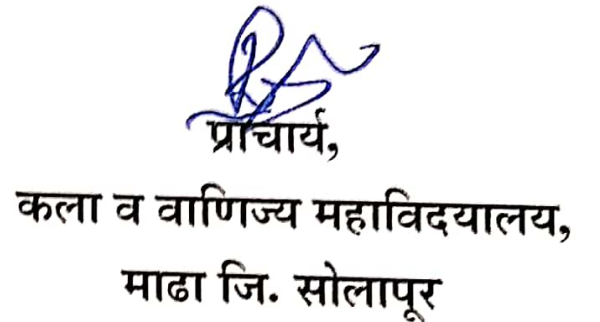 प्राचार्य,
कला व वाणिज्य महाविदयालय,
माढा जि. सोलापूर